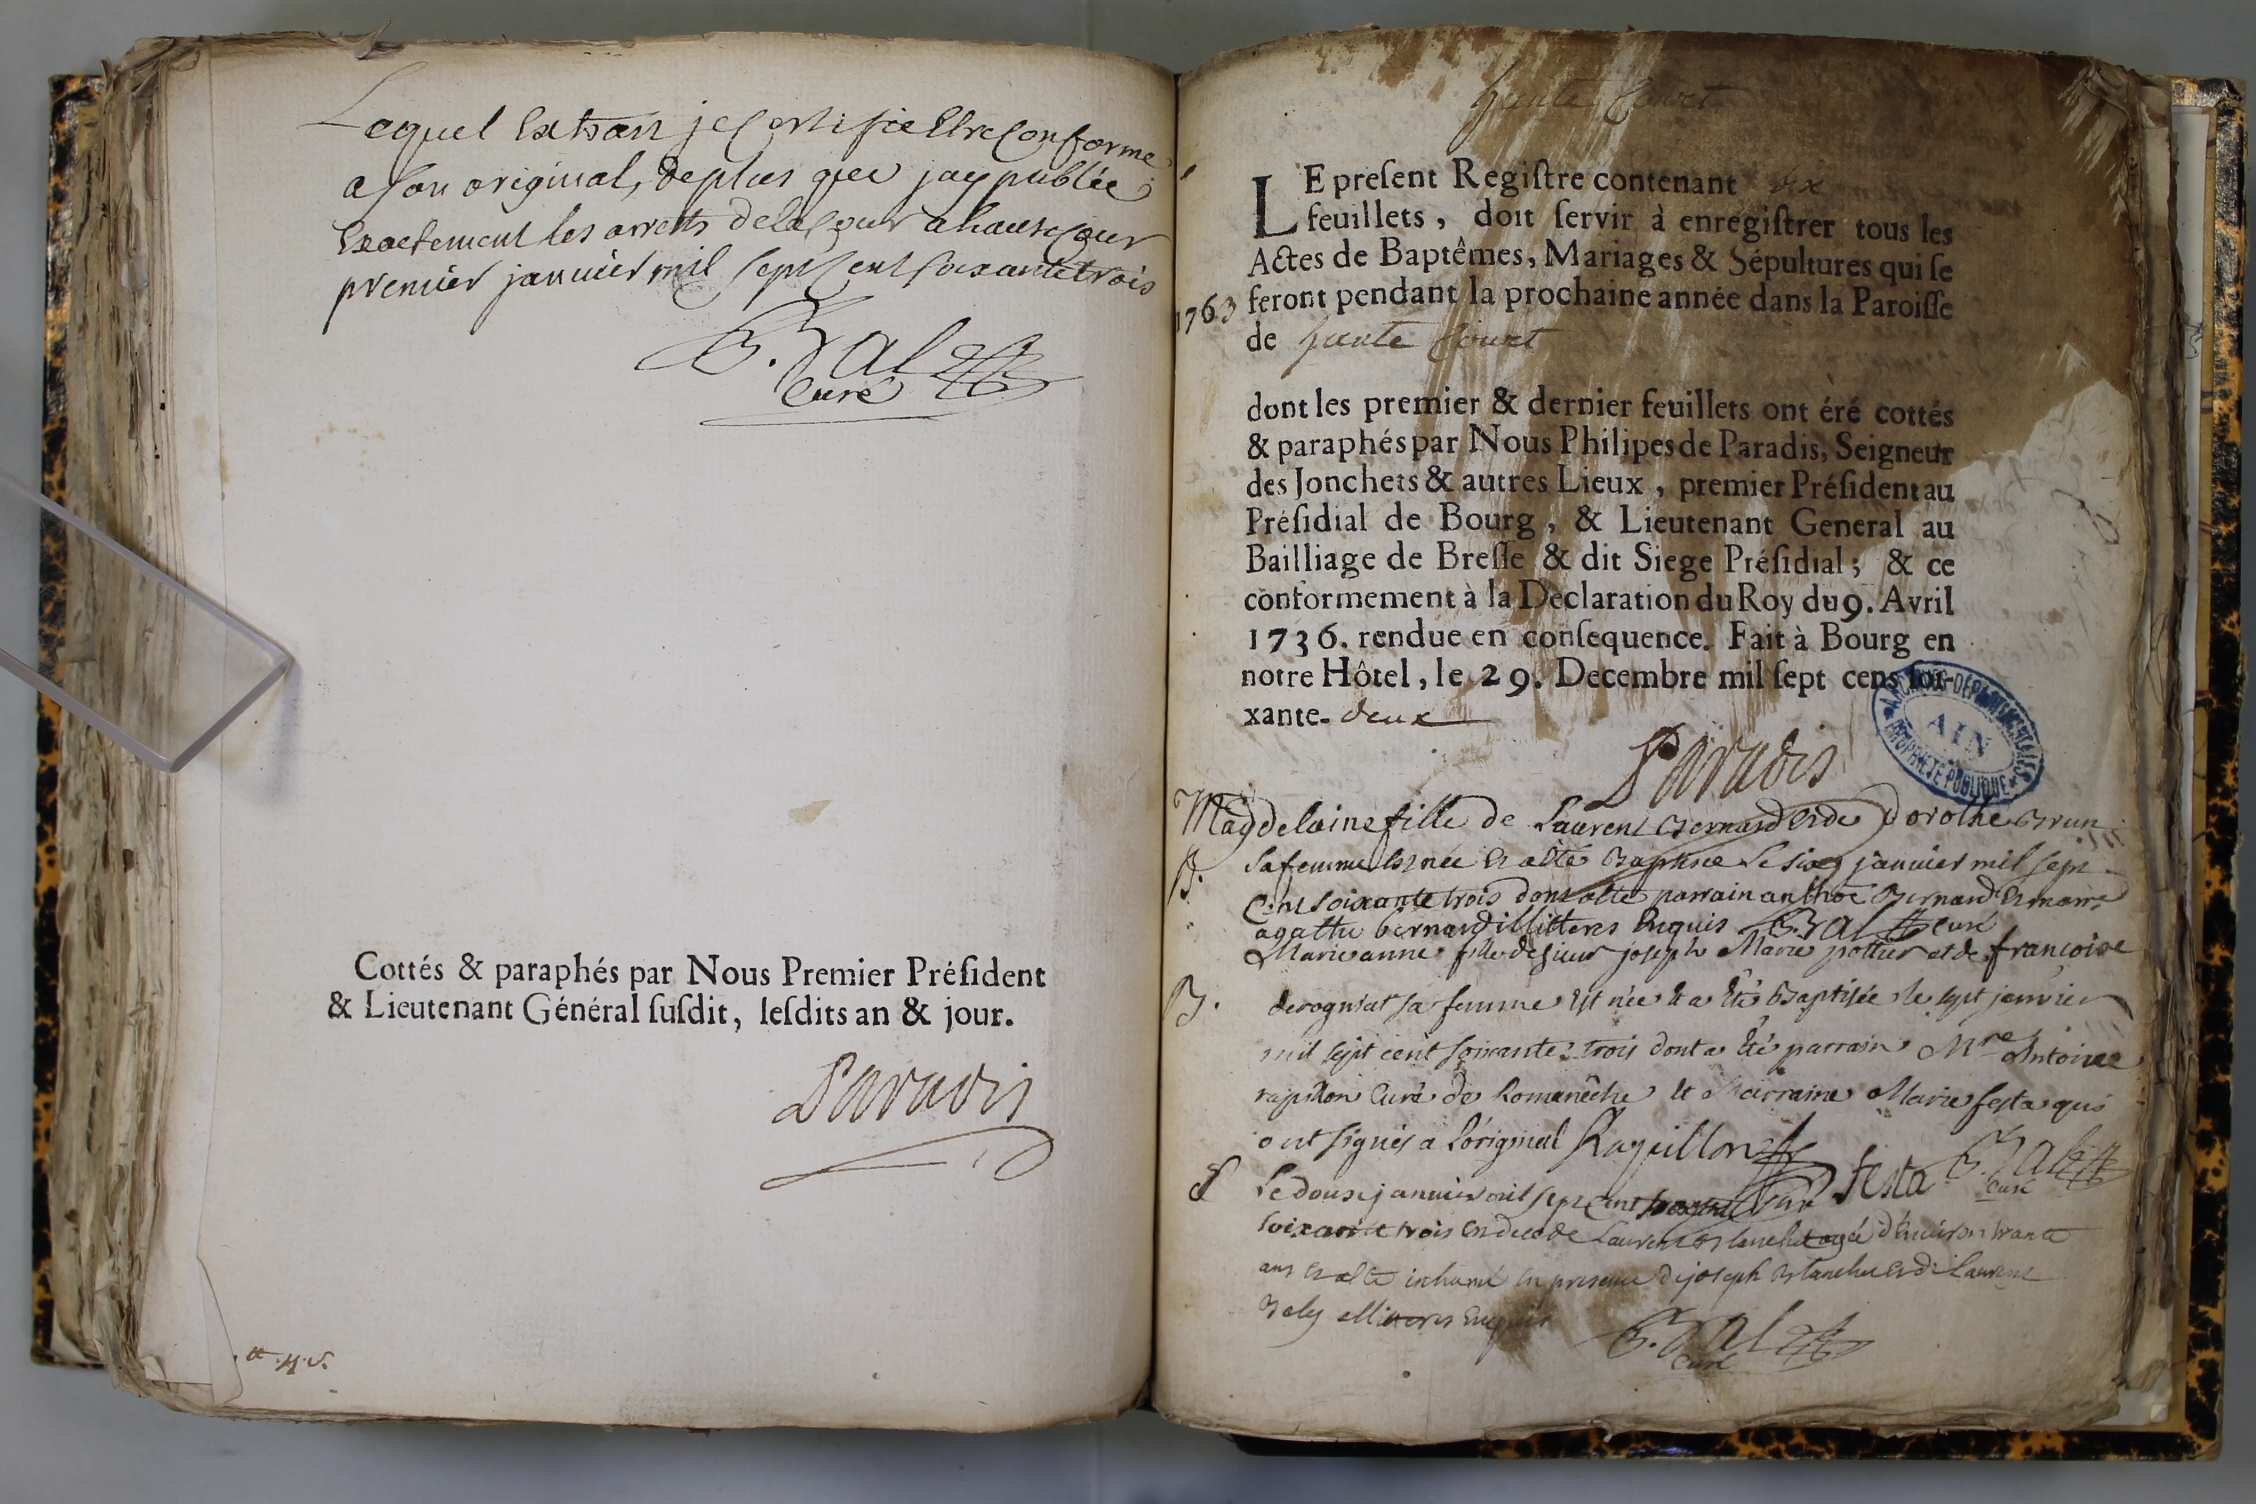 Lequel Extrait je certifie Etre conforme
a son original, deplus que jay publiée
Exactement les arrets de la cour a hautecour
premier janvier mil sept cent soixante trois
Curé
Cottés & paraphés par Nous Premier Préſident
& Lieutenant Général ſuſdit, leſdits an & jour.
Paradis
haute Court
LE preſent Regiſtre contenant dix
feuillets, doit ſervir à enregiſtrer tous les
Actes de Baptêmes, Mariages & Sépultures qui ſe
1763 feront pendant la prochaine année dans la Paroiſſe
de haute Court
dont les premier & dernier feuillets ont éré cottés
& paraphés par Nous Philipes de Paradis, Seigneur
des Jonchets & autres Lieux, premier Préſident au
Préſidial de Bourg, & Lieutenant General au
Bailliage de Breſſe & dit Siege Préſidial; & ce
conformement à la Declaration du Roy du 9. Avril
1736. rendue en conſequence. Fait à Bourg en
notre Hôtel, le 29. Decembre mil ſept cens ſoi-
xante- deux
ARCHIVES DEPARTEMENTALES
AIN
PROPRIETE PUBLIQUE
Paradis
Magdelaine fille de Laurent Bernard et de Dorothe Brun
B. sa femme est née et a été Baptisee le six janvier mil sept
cent soixante trois dont a été parrain anthoe Bernard et marr
agathe bernard illitteres Enquis curé
Marie anne fille de sieur joseph Marie pottier et de francoise
B. derogniat sa femme est née et a été Baptisée le sept janvier
mil sept cent soixante trois dont a été parrain Mre Antoine
rapillon Curé de Romanêche et Marraine Marie festa qui
ont signés a l'original Rapillon festa curé
S Le douze janvier mil sept cent
soixante trois est decedé Laurent Blanchet agé d'environ trante
ans et a été inhumé en presence de joseph Blanchet et de Laurent
Bely illitteres enquis
curé